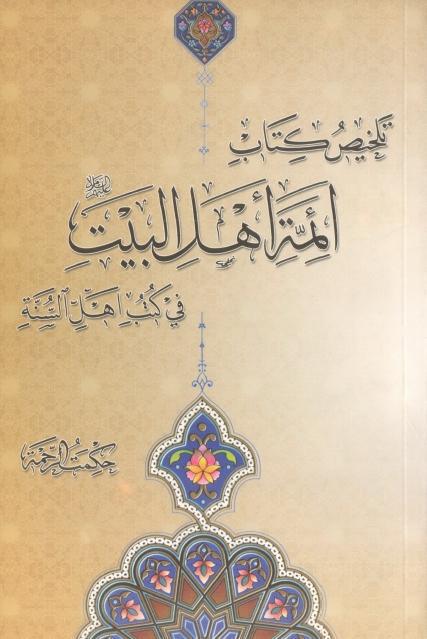 تلخيصُ كِتَابِ
ائِمَّةِ أَهْلِ البَيْتِ
عليهم السلام
في كُتُبِ اهَلِّ السُّنَّةِ
حِكْمَتُ الرَّحْمَة